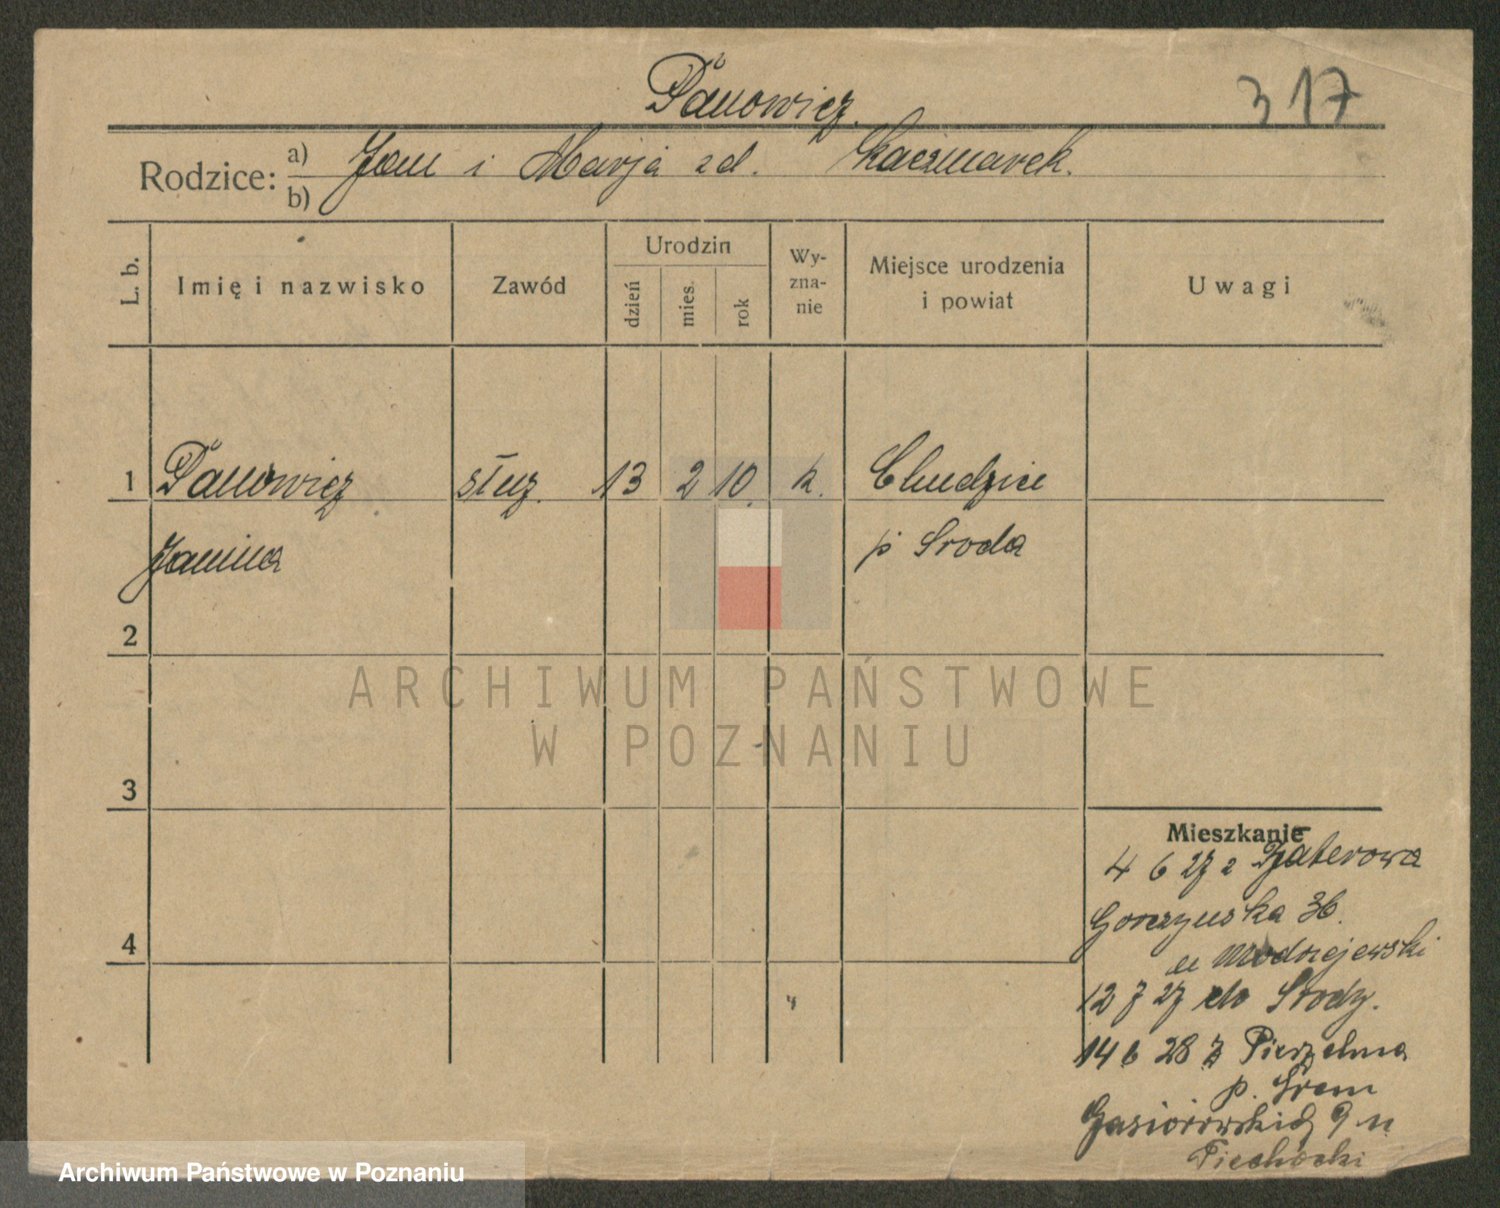 Panowicz.
317
Rodzice: a) Jan i Marja zd. Kaczmarek.
b)
L. b.
Imię i nazwisko
Zawód
Urodzin
dzień
mies.
rok
Wy-
zna-
nie
Miejsce urodzenia
i powiat
Uwagi
1 Panowicz służ. 13 2 10. k. Chudzice
Janina p Sroda
2
ARCHIWUM PAŃSTWOWE
W POZNANIU
3
4
Mieszkanie
4 6 27 z
Gorczynska 36.
u Modrzejewski
12 7 27 do Srody.
14 6 28 z
p. Srem
Gasiorowskich 9 u
Piechocki
Archiwum Państwowe w Poznaniu